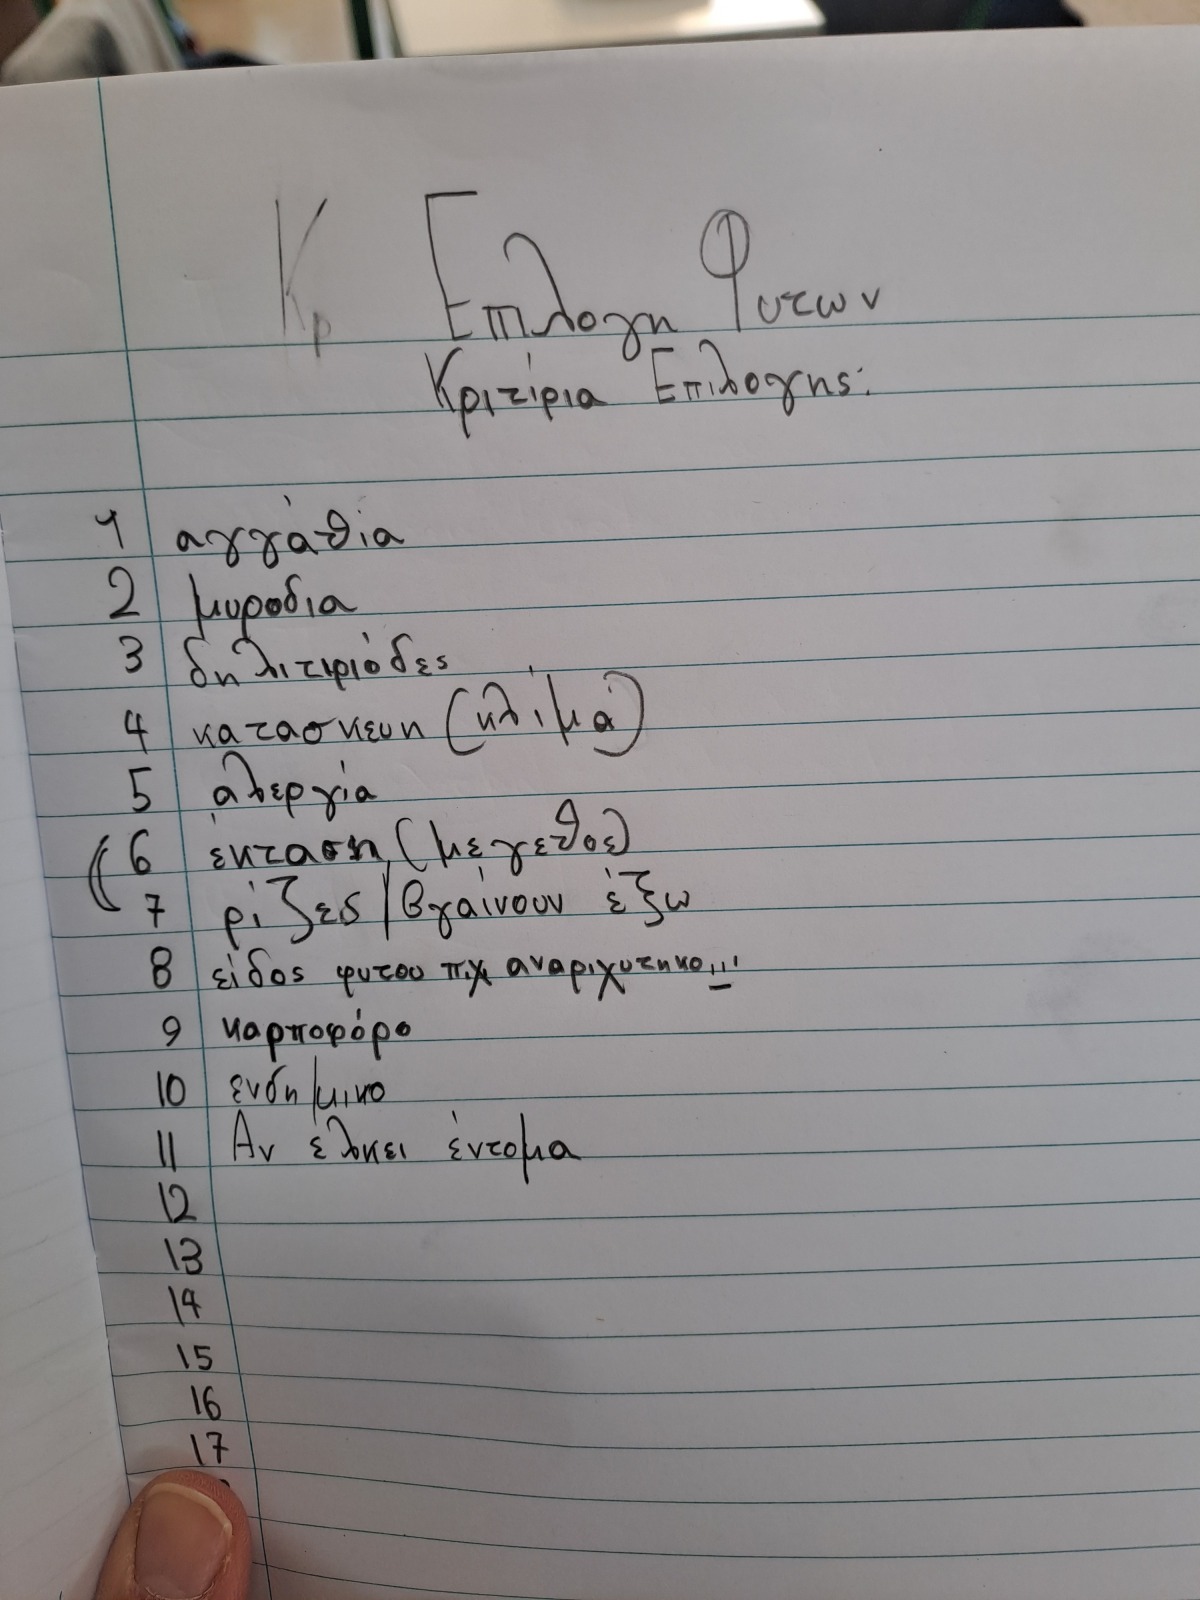 Κρ Επιλογη Φυτων
Κριτίρια Επιλογης:
1 αγγάθια
2 μυροδια
3 δηλιτιριόδες
4 κατασκευη (κλίμα)
5 αλεργία
6 έκταση (μεγεθος)
7 ρίζες / βγαίνουν έξω
8 είδος φυτου πχ αναριχυτηκο!!!
9 καρποφόρο
10 ενδημικο
11 Αν έλκει έντομα
12
13
14
15
16
17